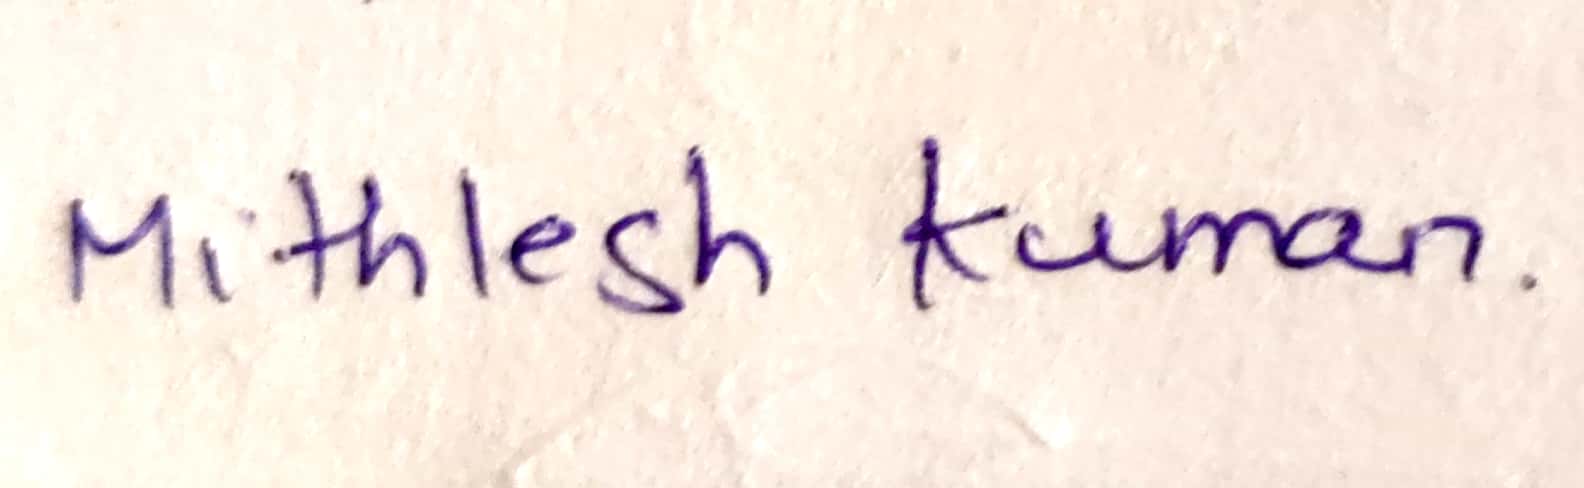 Mithlesh Kumar.